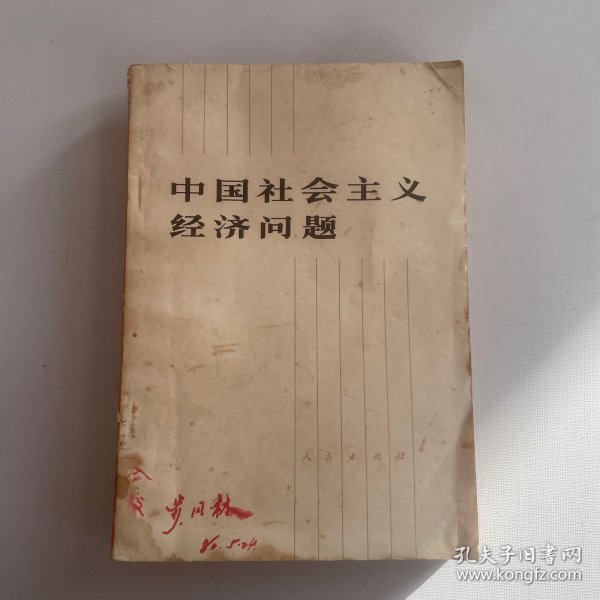 中国社会主义
经济问题
人民出版社
80.5.24
孔夫子旧书网
www.kongfz.com